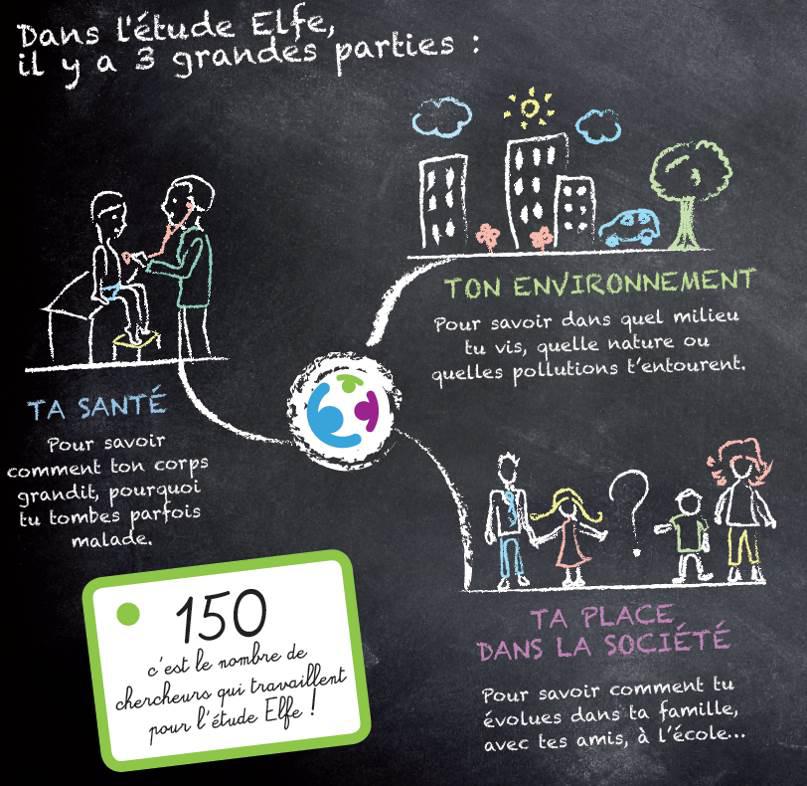 Dans l'étude Elfe,
il y a 3 grandes parties :
TON ENVIRONNEMENT
Pour savoir dans quel milieu
tu vis, quelle nature ou
quelles pollutions t'entourent.
TA SANTÉ
Pour savoir
comment ton corps
grandit, pourquoi
tu tombes parfois
malade.
?
TA PLACE
DANS LA SOCIÉTÉ
Pour savoir comment tu
évolues dans ta famille,
avec tes amis, à l'école...
150
c'est le nombre de
chercheurs qui travaillent
pour l'étude Elfe !